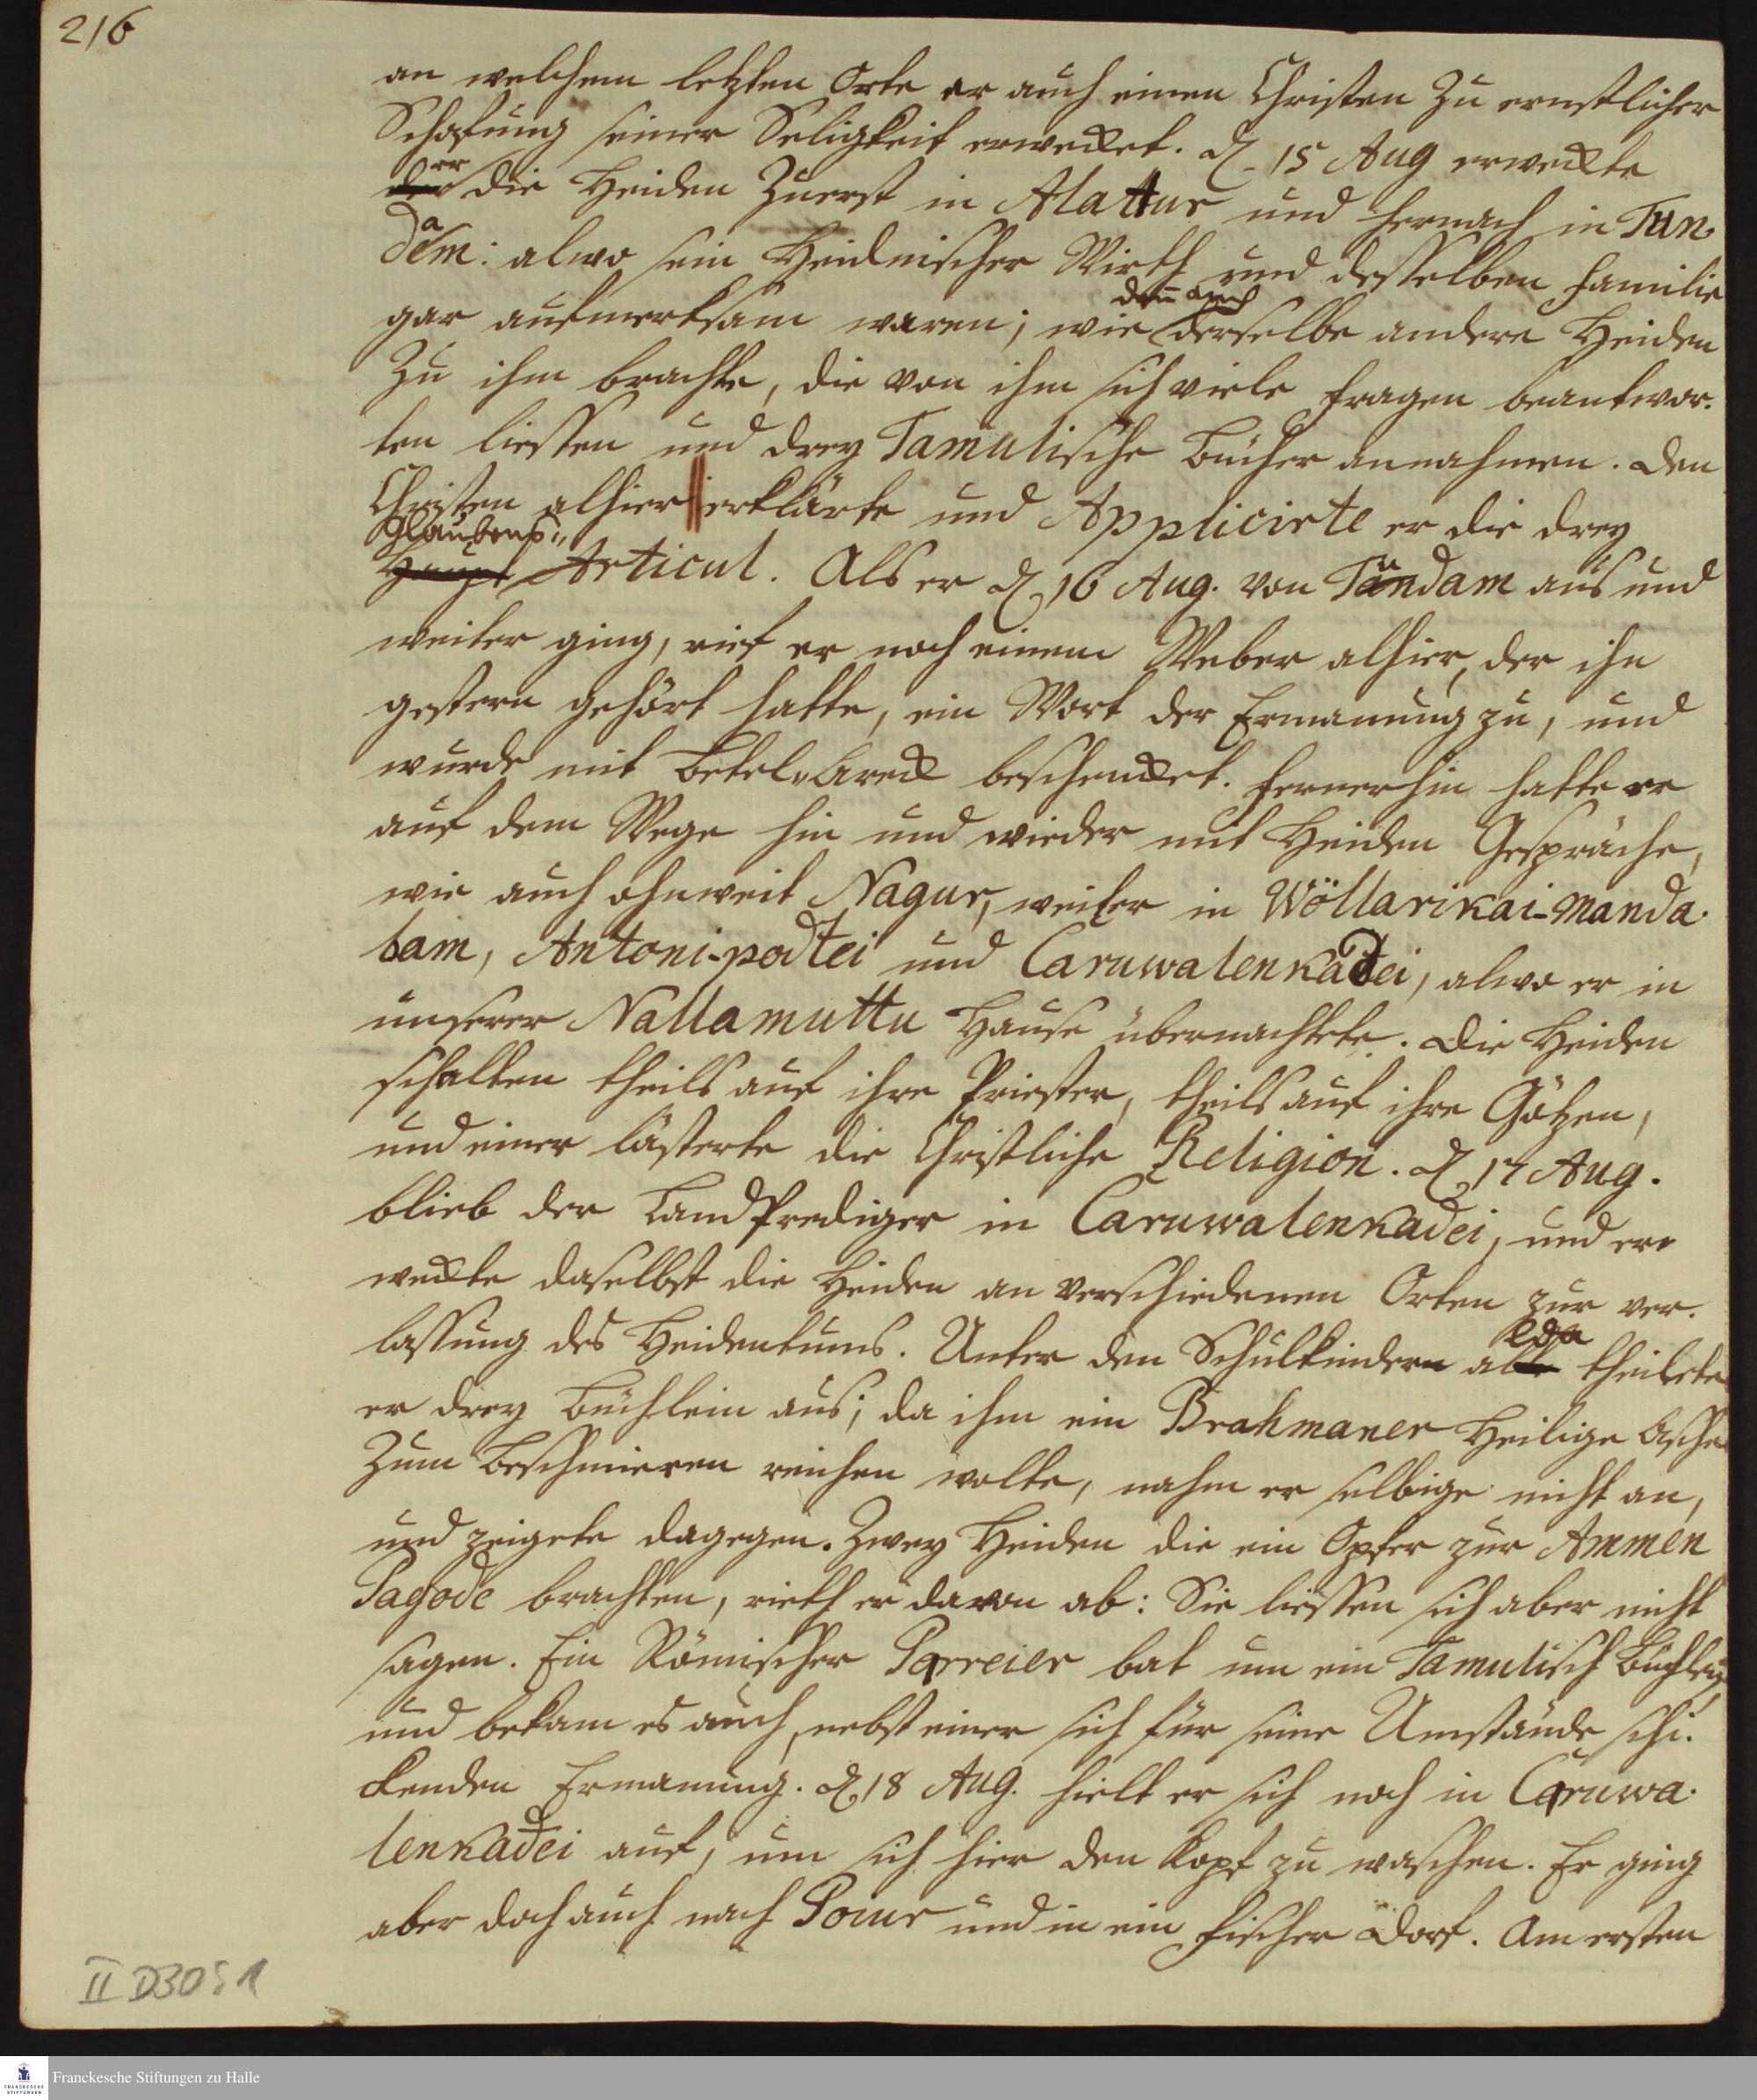 216
an welchem letzten Orte er auch einen Christen zu ernstlicher
Schafung seiner Seligkeit erwecket. d. 15 Aug erweckte
er
der die Heiden Zuerst in Alattur und hernach in Tun-
dam: alwo sein Heidnischer Wirth und desselben Familie
denn auch
gar aufmerksam waren; wie derselbe andere Heiden
Zu ihm brachte, die von ihm sich viele Fragen beantwor-
ten liessen und drey Tamulische Bücher annahmen. Den
Christen alhier erklärte und Applicirte er die drey
Glaubens-
Haupt Articul. Als er d. 16 Aug. von Tundam aus und
weiter ging, rief er noch einem Weber alhier, der ihn
gestern gehört hatte, ein Wort der Ermanung zu, und
wurde mit Betel-Areck beschencket. Fernerhin hatte er
auf dem Wege hin und wieder mit Heiden Gespräche,
wie auch ohnweit Nagur, weiter in Wöllarikai-Manda-
bam, Antoni-podtei und Caruwalenkadei, alwo er in
unserer Nallamuttu Hause übernachtete. Die Heiden
schalten theils auf ihre Priester, theils auf ihre Götzen,
und einer lästerte die Christliche Religion. d. 17 Aug.
blieb der LandPrediger in Caruwalenkadei, und er-
weckte daselbst die Heiden an verschiedenen Orten zur Ver-
lassung des Heidentums. Unter den Schulkindern alda theilete
er drey Büchlein aus; da ihm ein Brahmaner Heilige Asche
Zum Beschmieren reichen wolte, nahm er selbige nicht an,
und zeigete dagegen. Zwey Heiden die ein Opfer zur Ammen
Pagode brachten, rieth er davon ab: Sie liessen sich aber nicht
sagen. Ein Römischer Parreier bat um ein Tamulisch Büchlein
und bekam es auch, nebst einer sich für seine Umstände schi-
ckenden Ermanung. d. 18 Aug. hielt er sich noch in Caruwa-
lenkadei auf, um sich hier den Kopf zu waschen. Er ging
aber doch auch nach Poeur und in ein Fischer Dorf. Am ersten
II D30:1
Franckesche Stiftungen zu Halle
FRANCKESCHE
STIFTUNGEN